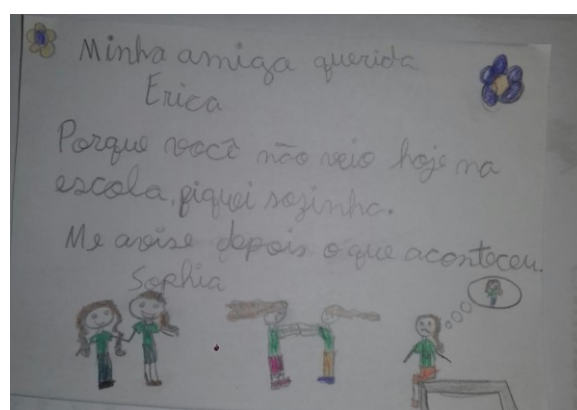 Minha amiga querida
Erica
Porque você não veio hoje na
escola, fiquei sozinha.
Me avise depois o que aconteceu.
Sophia